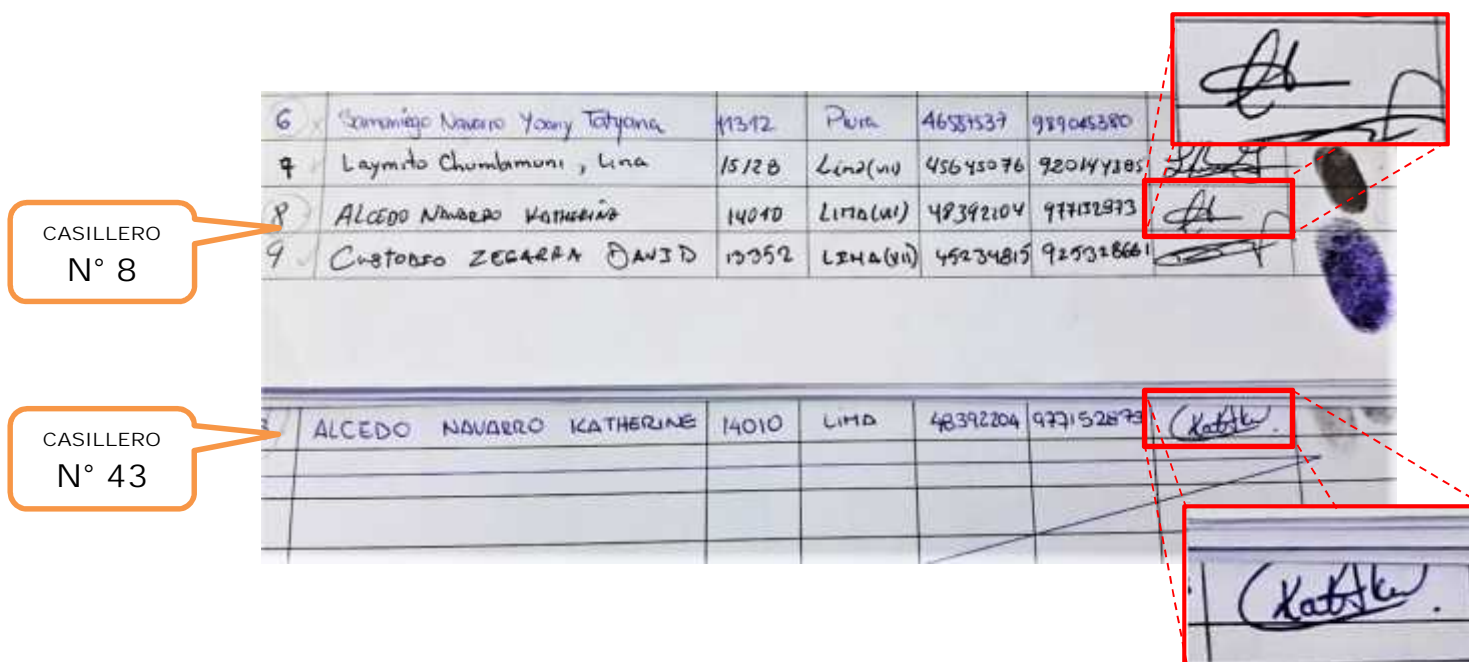 6 Samaniego Navarro Yoany Tatyana 11312 Piura 46587537 989045380
7 Laymito Chumbamuni, Lina 15128 Lima(VII) 45645076 920144385
CASILLERO
N° 8
8 ALCEDO NAVARRO KATHERINE 14010 LIMA(VII) 48392104 977132973
9 CUSTODIO ZEGARRA DAVID 13352 LIMA(VII) 45234815 925328661
CASILLERO
N° 43
3 ALCEDO NAVARRO KATHERINE 14010 LIMA 48392204 977152873